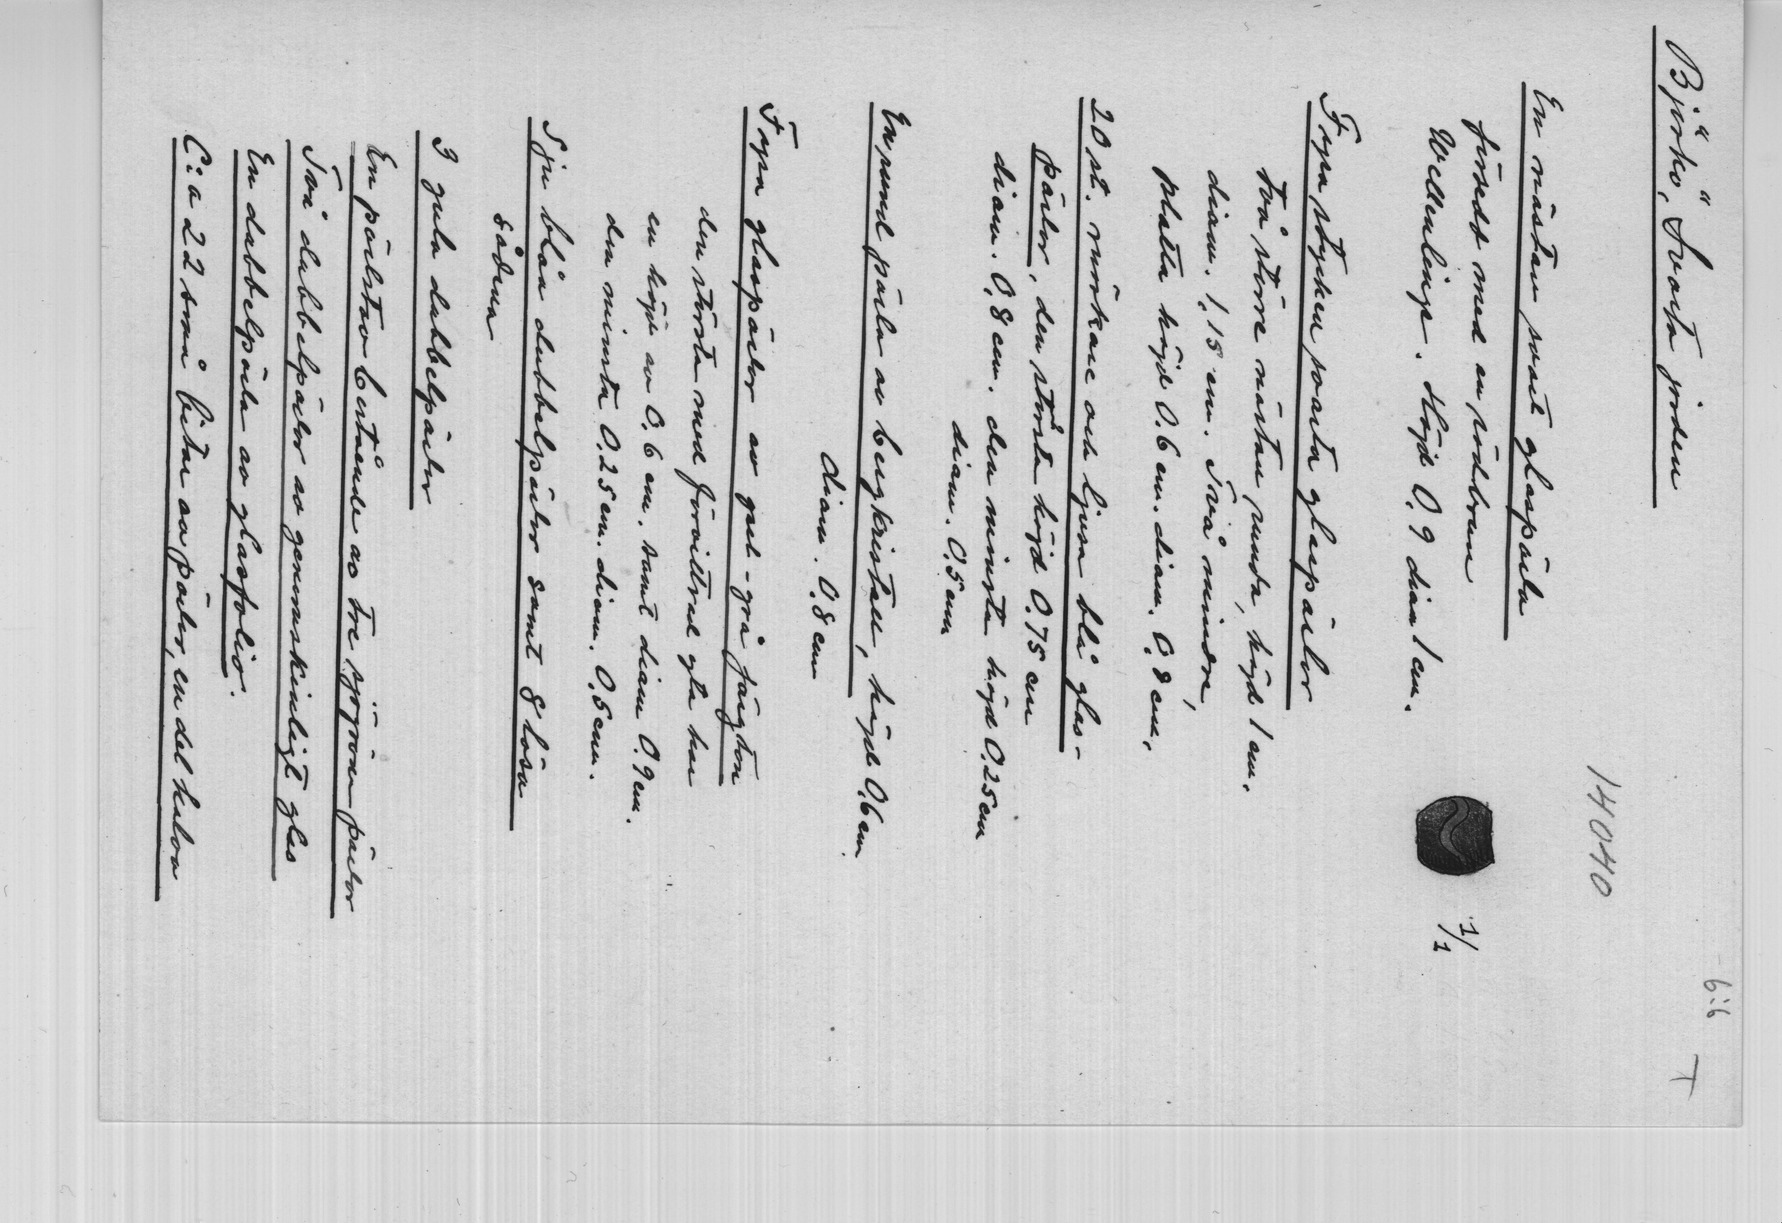 6:6 T
Björkö, Svarta jorden
14040
En nästan svart glaspärla
försedd med en rödbrun
Wellenlinje. Höjd 0,9 diam 1 cm.
1/1
Fyra stycken svarta glaspärlor
två större nästan runda, höjd 1 cm.
diam. 1,15 cm. Två mindre,
platta höjd 0.6 cm. diam. 0,8 cm.
20 st. mörkare och ljusa blå glas-
pärlor, den största höjd 0.75 cm
diam. 0,8 cm. den minsta höjd 0.25 cm
diam. 0,5 cm
En rund pärla av bergkristall, höjd 0,6 cm
diam. 0,8 cm
Fyra glaspärlor av gul-grå färgton
den största med förvittrad yta har
en höjd av 0,6 cm. samt diam 0.9 cm.
den minsta 0.25 cm. diam. 0,5 cm.
Sju blåa dubbelpärlor samt 8 lösa
sådana
3 gula dubbelpärlor
En pärlstav bestående av tre sjögröna pärlor
Två dubbelpärlor av genomskinligt glas
En dubbelpärla av glasfolio.
C:a 22 små bitar av pärlor, en del halva